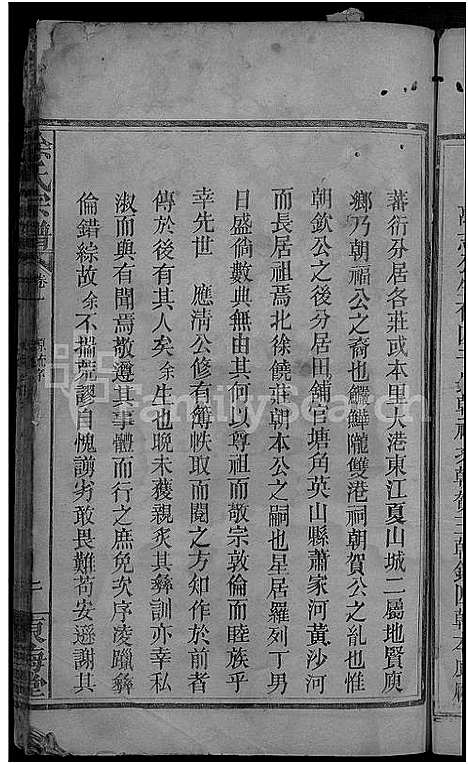 蕃衍分居各莊或本里大港東江夏山城二屬地賢庾
鄉乃朝福公之裔也鱺鱓隴雙港祠朝賀公之亂也惟
朝欽公之後分居田鋪官塘角英山縣蕭家河黃沙河
而長居祖焉北徐饒莊朝本公之嗣也星居羅列丁男
日盛倘數典無由其何以尊祖而敬宗敦倫而睦族乎
幸先世 應清公修有簿帙取而閱之方知作於前者
傳於後有其人矣余生也晚未獲親炙其彞訓亦幸私
淑而與有聞焉敬遵其事體而行之庶免次序凌躐彞
倫錯綜故余不揣荒謬自愧謭劣敢畏難苟安遜謝其
徐氏宗譜
卷一
東海堂
FamilySearch